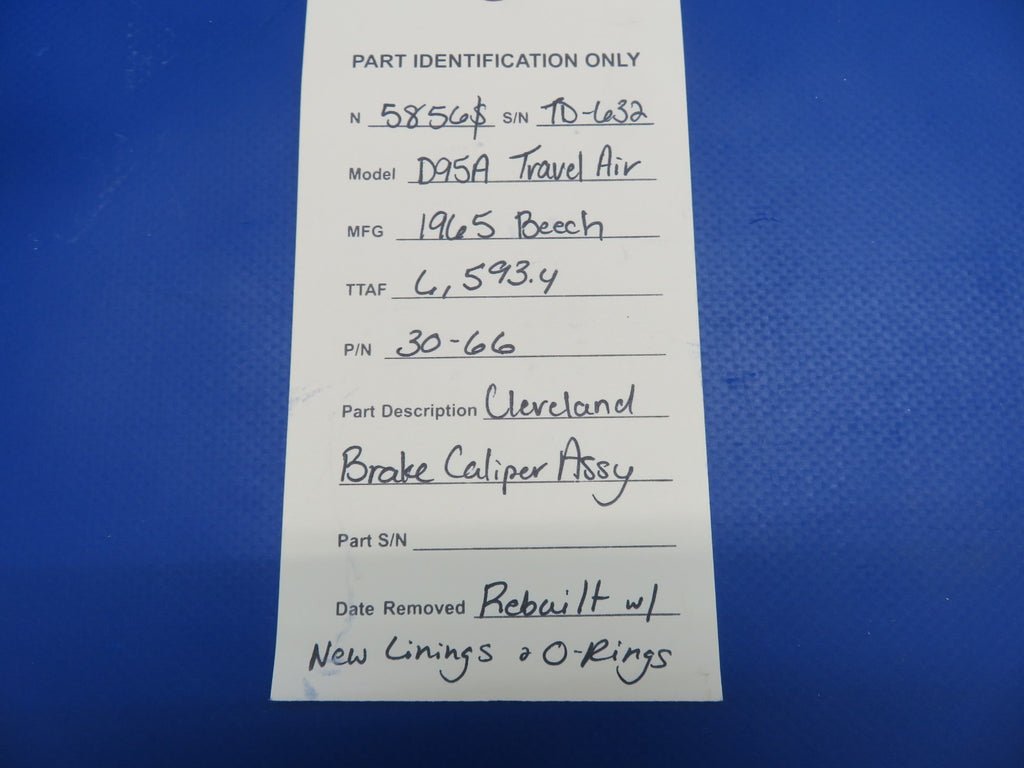 PART IDENTIFICATION ONLY
N 5856$ S/N TD-632
Model D95A Travel Air
MFG 1965 Beech
TTAF 6,593.4
P/N 30-66
Part Description Cleveland
Brake Caliper Assy
Part S/N
Date Removed Rebuilt w/
New Linings & O-Rings